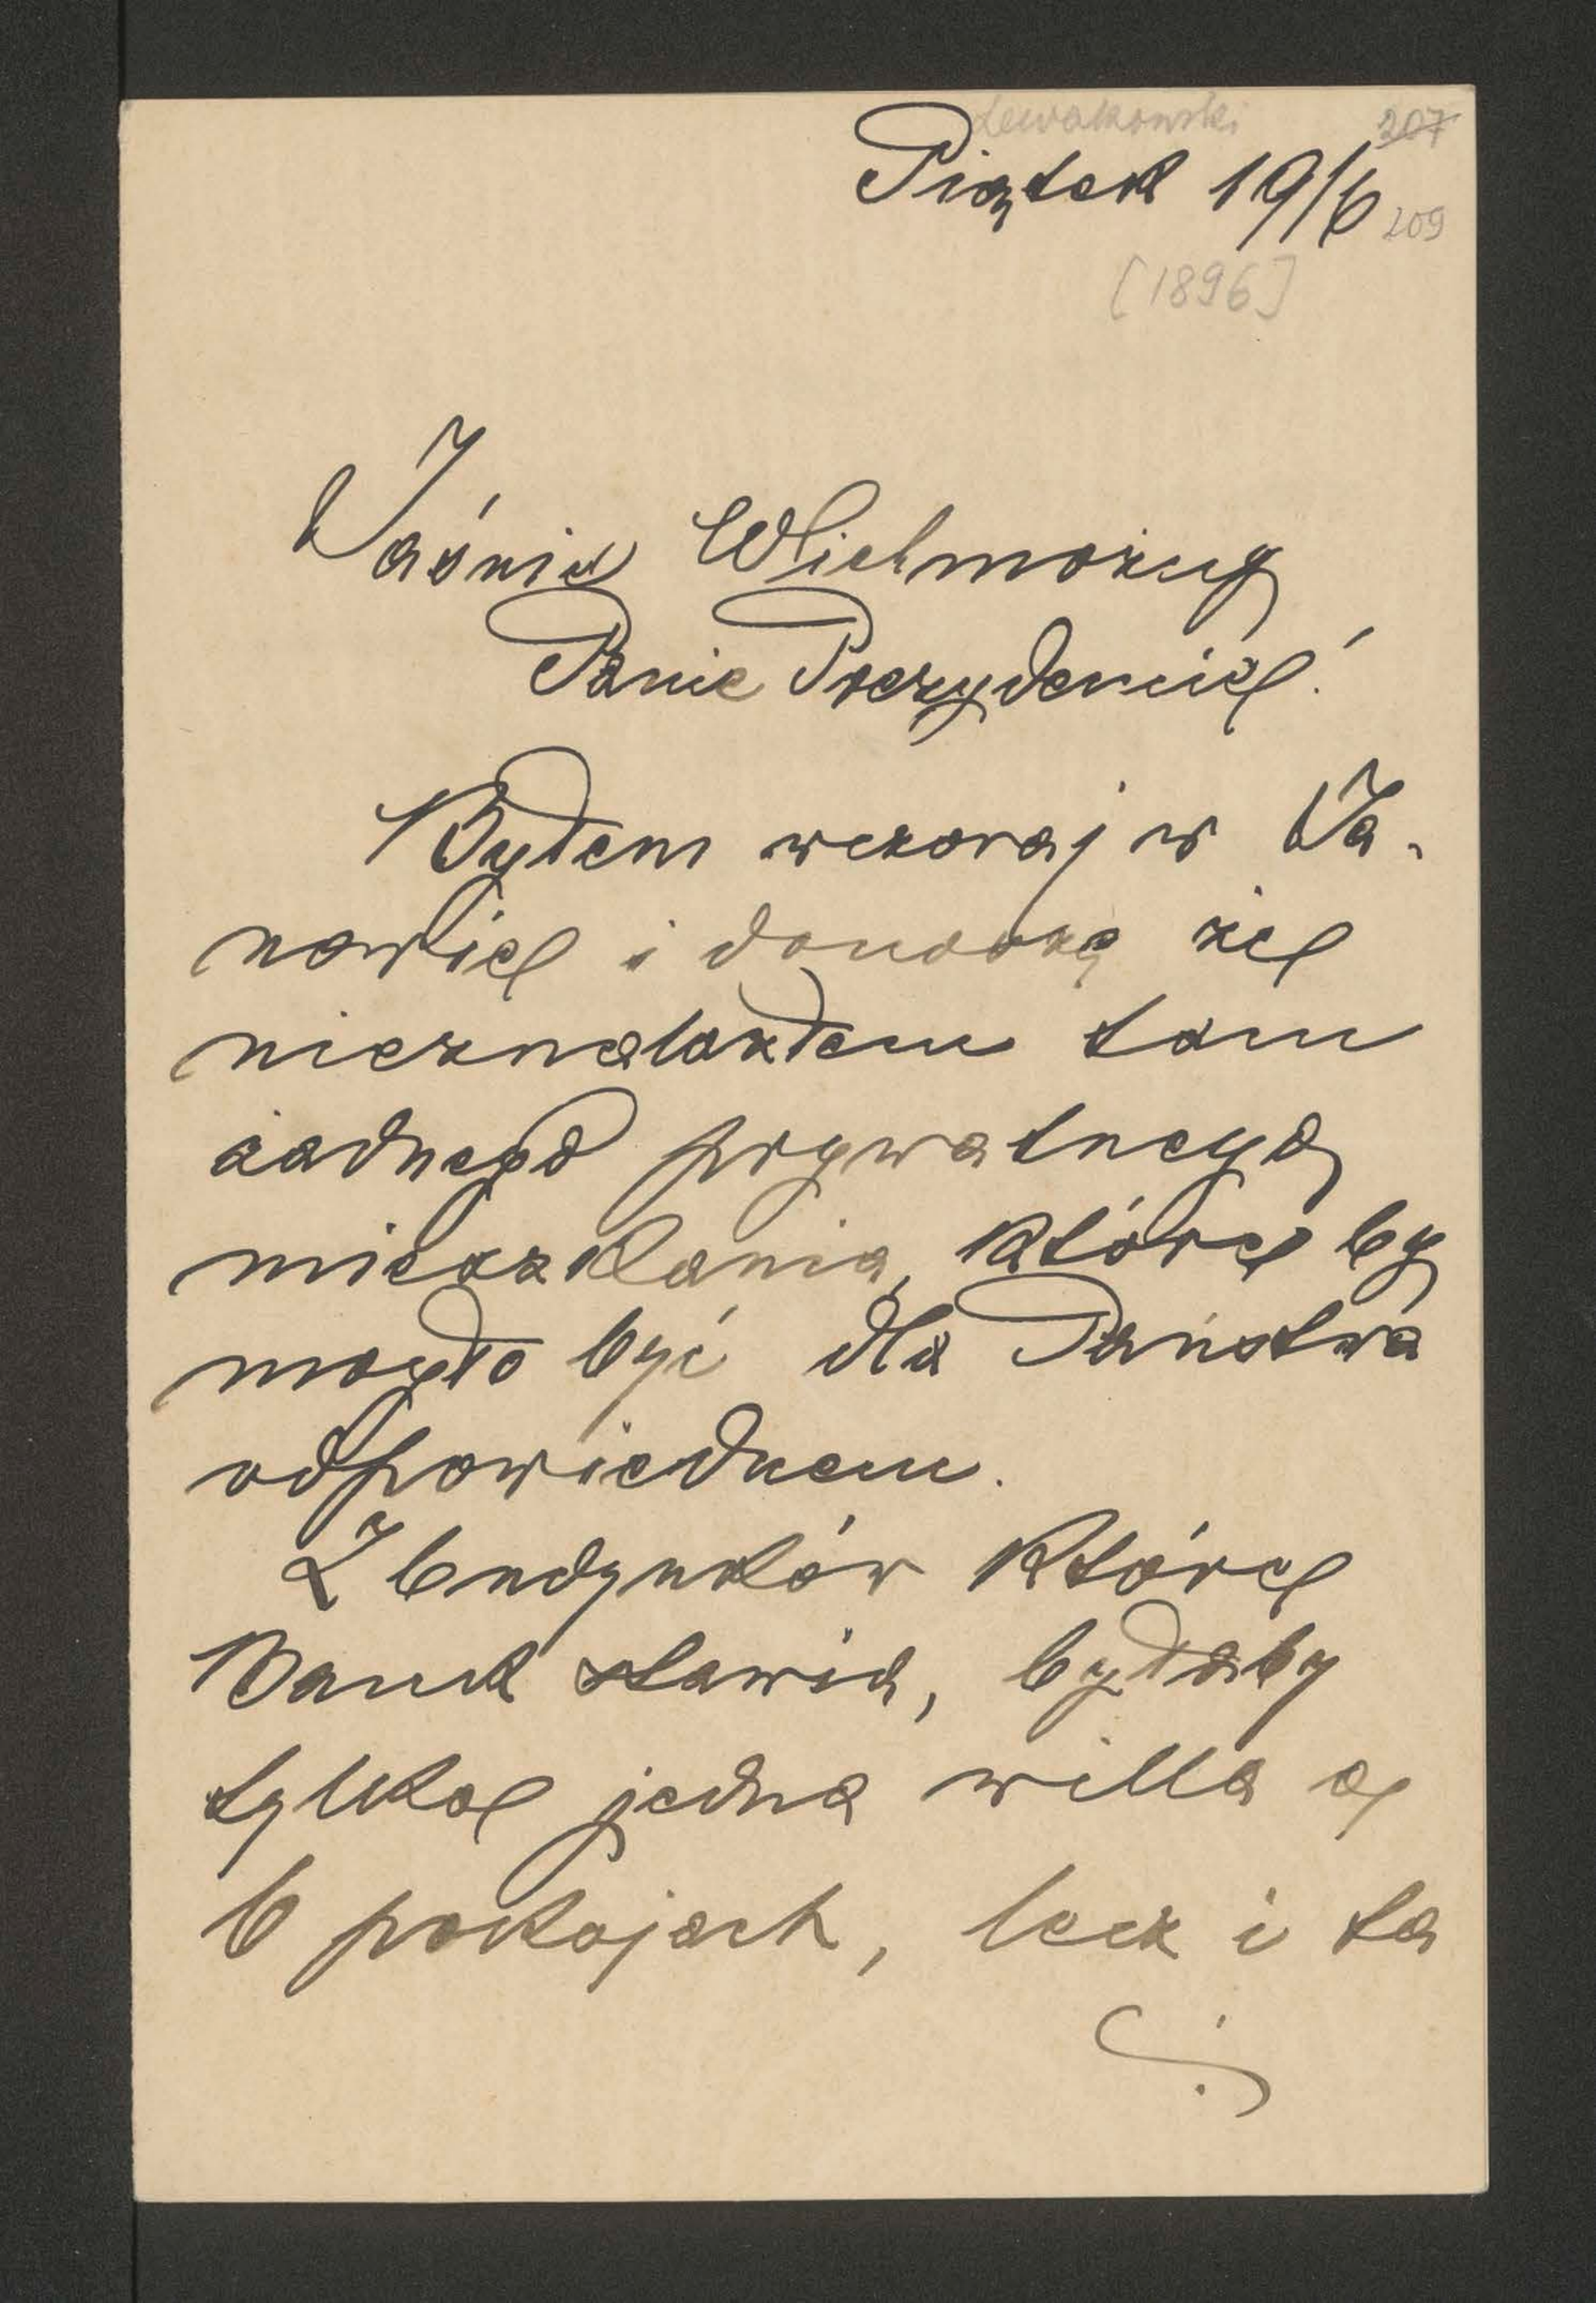 Lewakowski 207
Piątek 19/6 209
[1896]
Jaśnie Wielmożny
Panie Prezydencie!
Byłem wczoraj w Ja-
nowie i donoszę że
nieznalazłem tam
żadnego prywatnego
mieszkania, które by
mogło być dla Państwa
odpowiednem.
Z budynków które
Bank stawia, byłaby
tylko jedna willa o
6 pokojach, lecz i ta